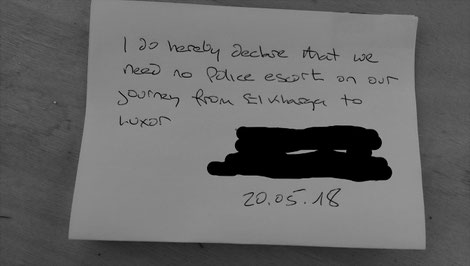 I do hereby declare that we
need no Police escort on our
journey from El Kharga to
Luxor
20.05.18